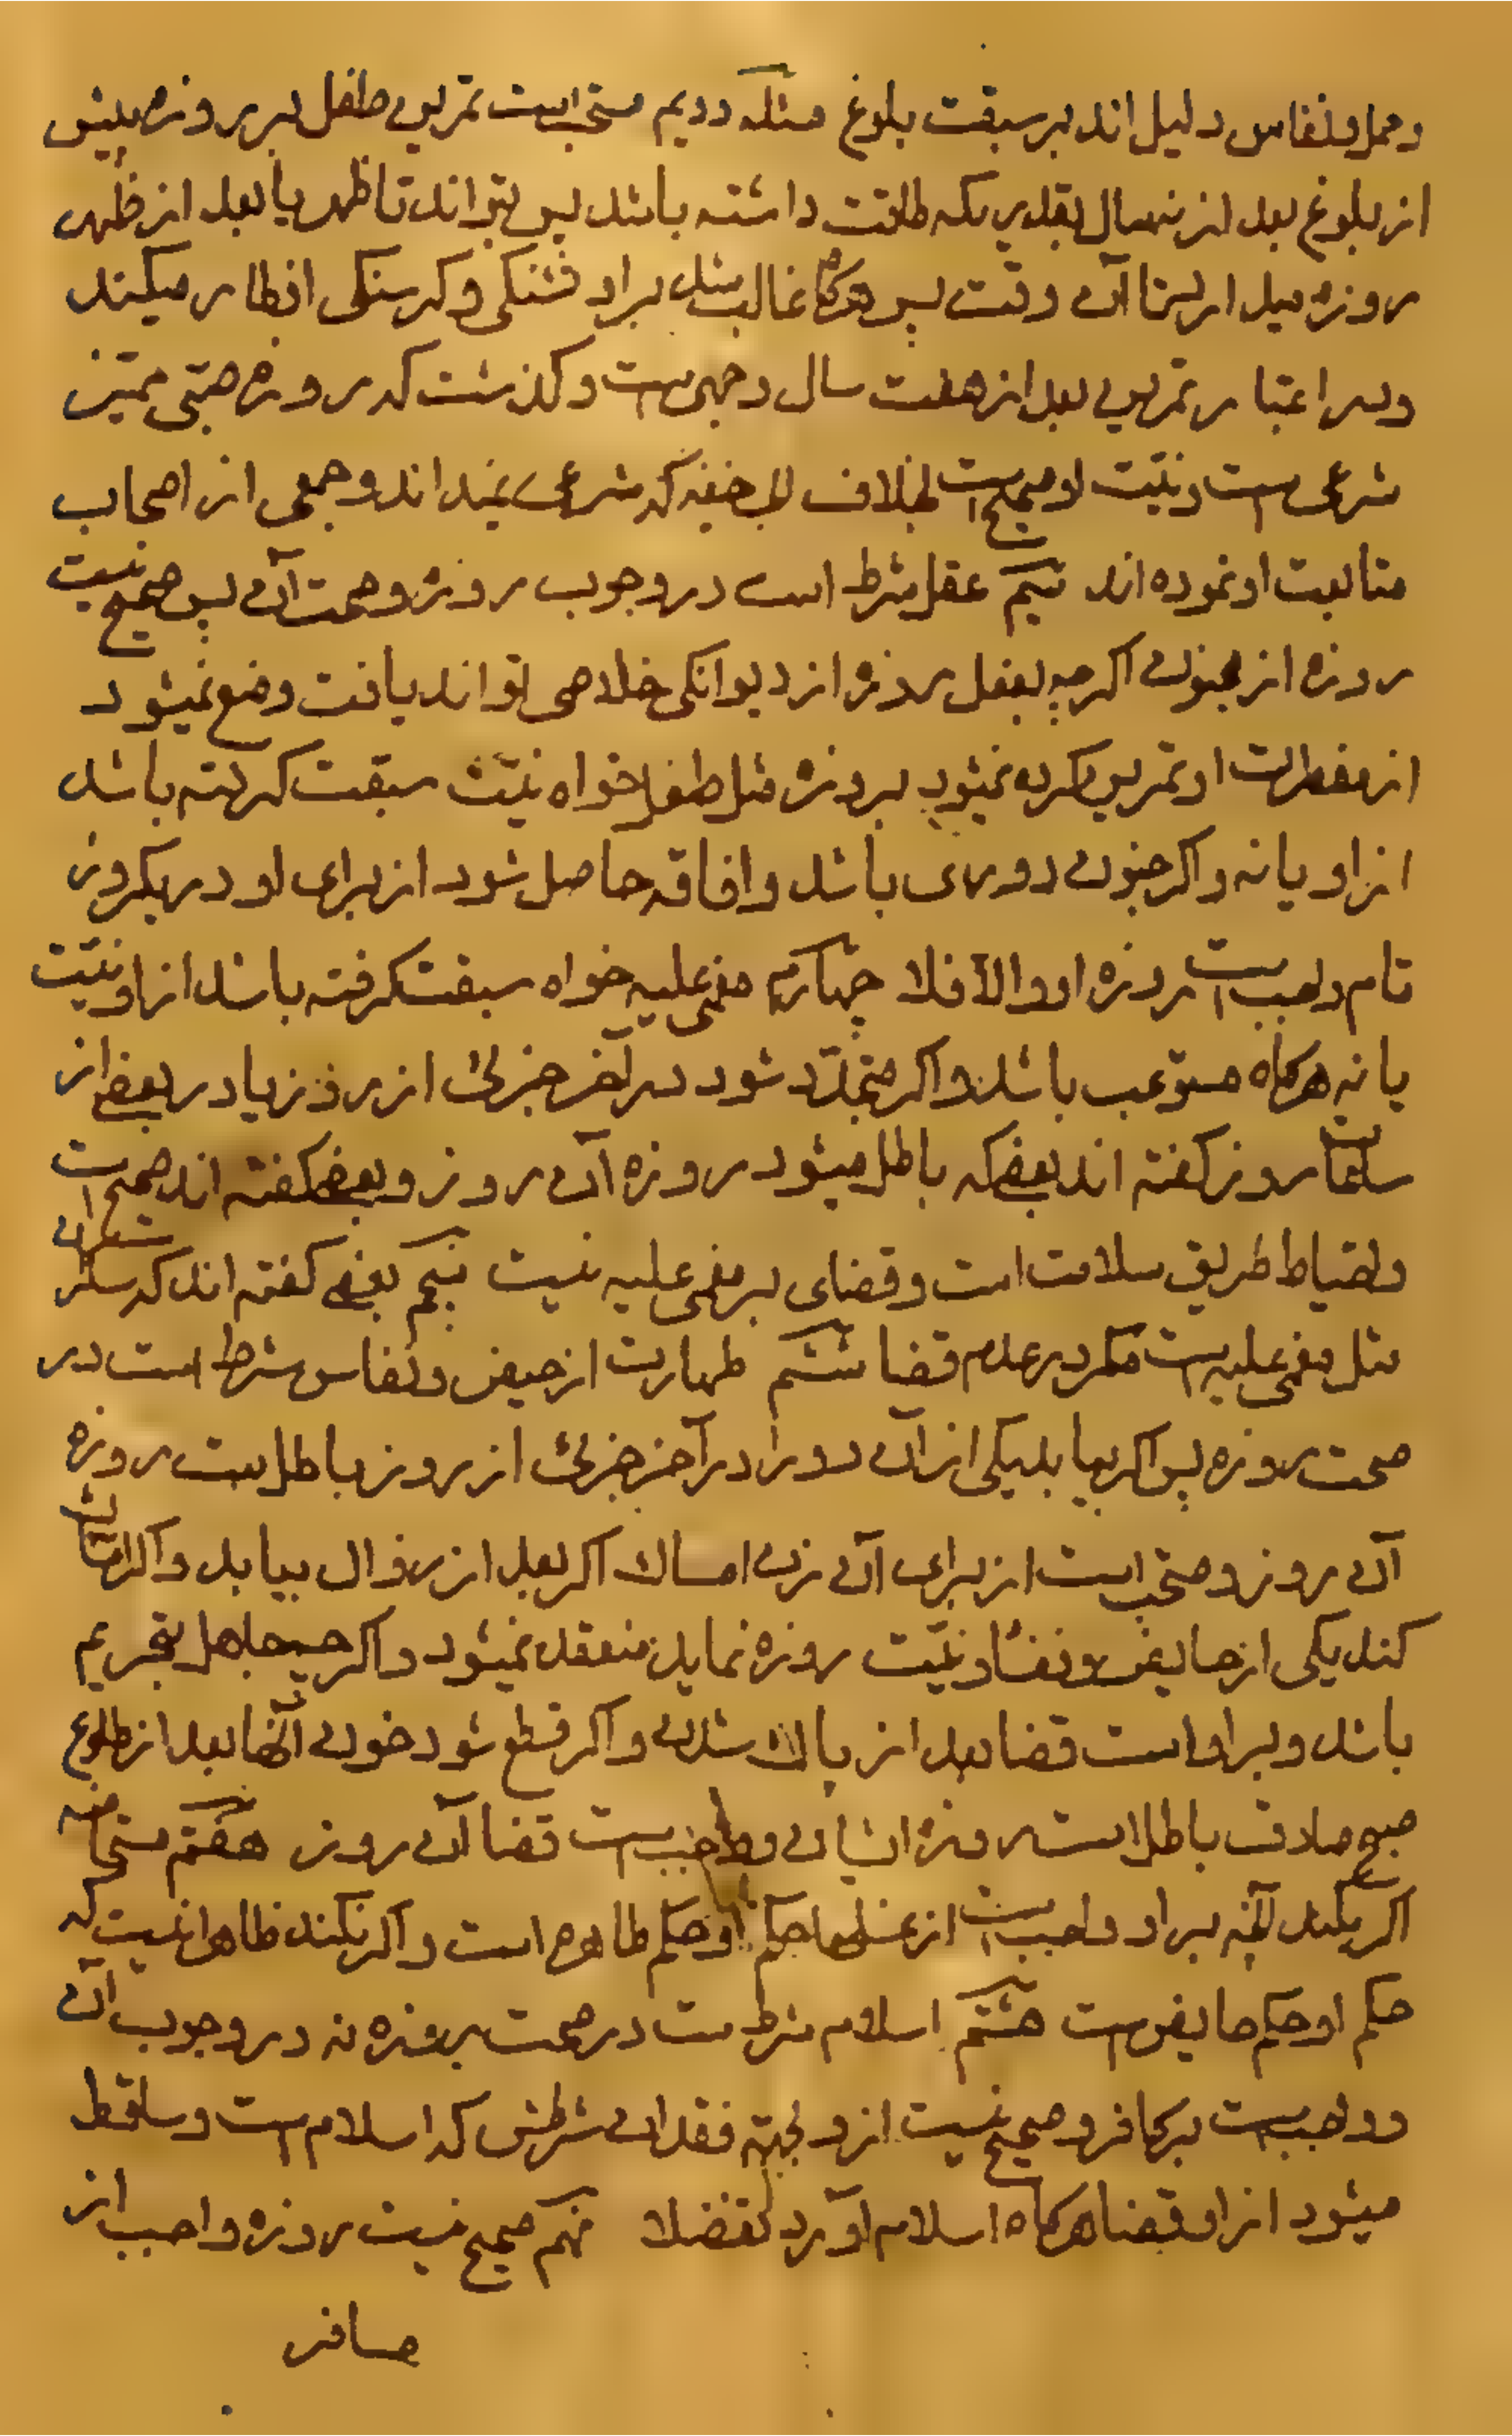 وحمل ونفاس دلیل اند بر سبقت بلوغ مسئله دویم مستحب است تمرین طفل بر روزه پیش
از بلوغ بعد از نه سال بقدریکه طاقت داشته باشد پس بتواند تا ظهر یا بعد از ظهر
روزه میدارد تا آن وقت پس هرگاه غالب شد بر او تشنکی وکرسنکی افطار میکند
ودر اعتبار تمرین بعد از هفت سال وجهی ست وکذشت که روزه صبی ممیز
شرعی ست ونیت او صحیح است بخلاف ابی حنیفه که شرعی نمیداند وجمعی از اصحاب
متابعت او نموده اند سیم عقل شرط است در وجوب روزه وصحت آن پس صحیح نیست
روزه از مجنون اکرچه بفعل روزه از دیوانکی خلاصی تواند یافت ومنع نمیشود
از مفطرات او تمرین کرده نمیشود بروزه مثل طفل خواه نیت سبقت کرفته باشد
از او یا نه واکر جنون دوری باشد وافاقه حاصل شود از برای او در یکروز
تام واجب است روزه او والا فلا چهارم مغمی علیه خواه سبقت کرفته باشد از او نیت
یا نه هرکاه مستوعب باشد واکر متجدد شود در آخر جزئی از روز یا در بعضی از
ساعات روز کفته اند بعضی که باطل میشود روزه آن روز وبعضی کفته اند صحیح است
واحتیاط طریق سلامت است وقضای بر مغمی علیه نیست پنجم بعضی کفته اند که سکران
مثل مغمی علیه ست مکر در عدم قضا ششم طهارت از حیض ونفاس شرط است در
صحت روزه پس اکر بیابد یکی از آن دو را در آخر جزئی از روز باطل ست روزه
آن روز ومستحب است از برای آن زن امساک اکر بعد از زوال بیابد واکر امساک
کند یکی از حایض ونفسا ونیت روزه نماید منعقد نمیشود واکرچه جاهل بتحریم
باشد وبر او است قضا بعد از پاک شدن واکر قطع شود خون آنها بعد از طلوع
صبح صادق باطل است روزه ایشان وواجب ست قضا آن روز هفتم مستحاضه
اکر بکند آنچه بر او واجب است از غسلها حکم او حکم طاهره است واکر نکند ظاهر آنست که
حکم او حکم حایض ست هشتم اسلام شرط ست در صحت روزه نه در وجوب آن
وواجب ست بر کافر وصحیح نیست از و بجهته فقدان شرطش که اسلام ست وساقط
میشود از او قضا هرکاه اسلام آورد تفضلا نهم صحیح نیست روزه واجب از
مسافر